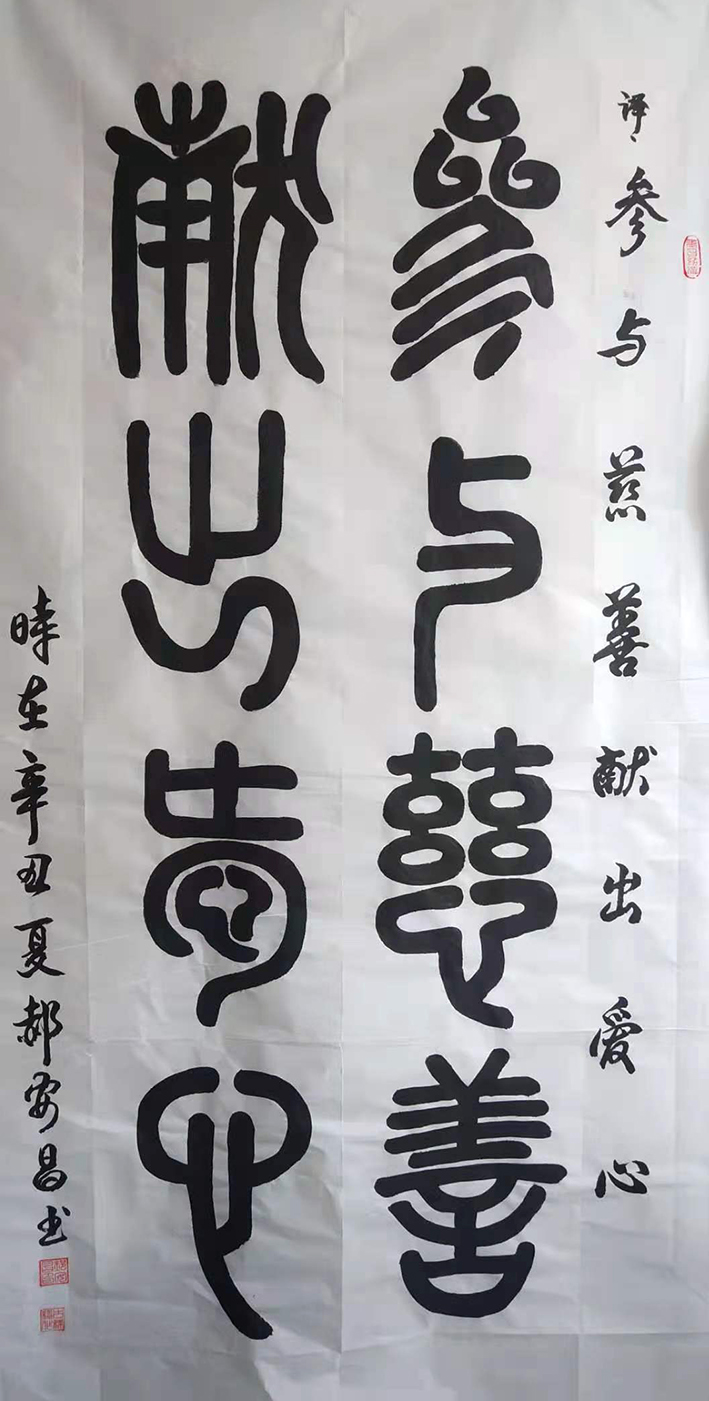 译、参与慈善献出爱心
参与慈善
献出爱心
時在辛丑夏郝安昌书